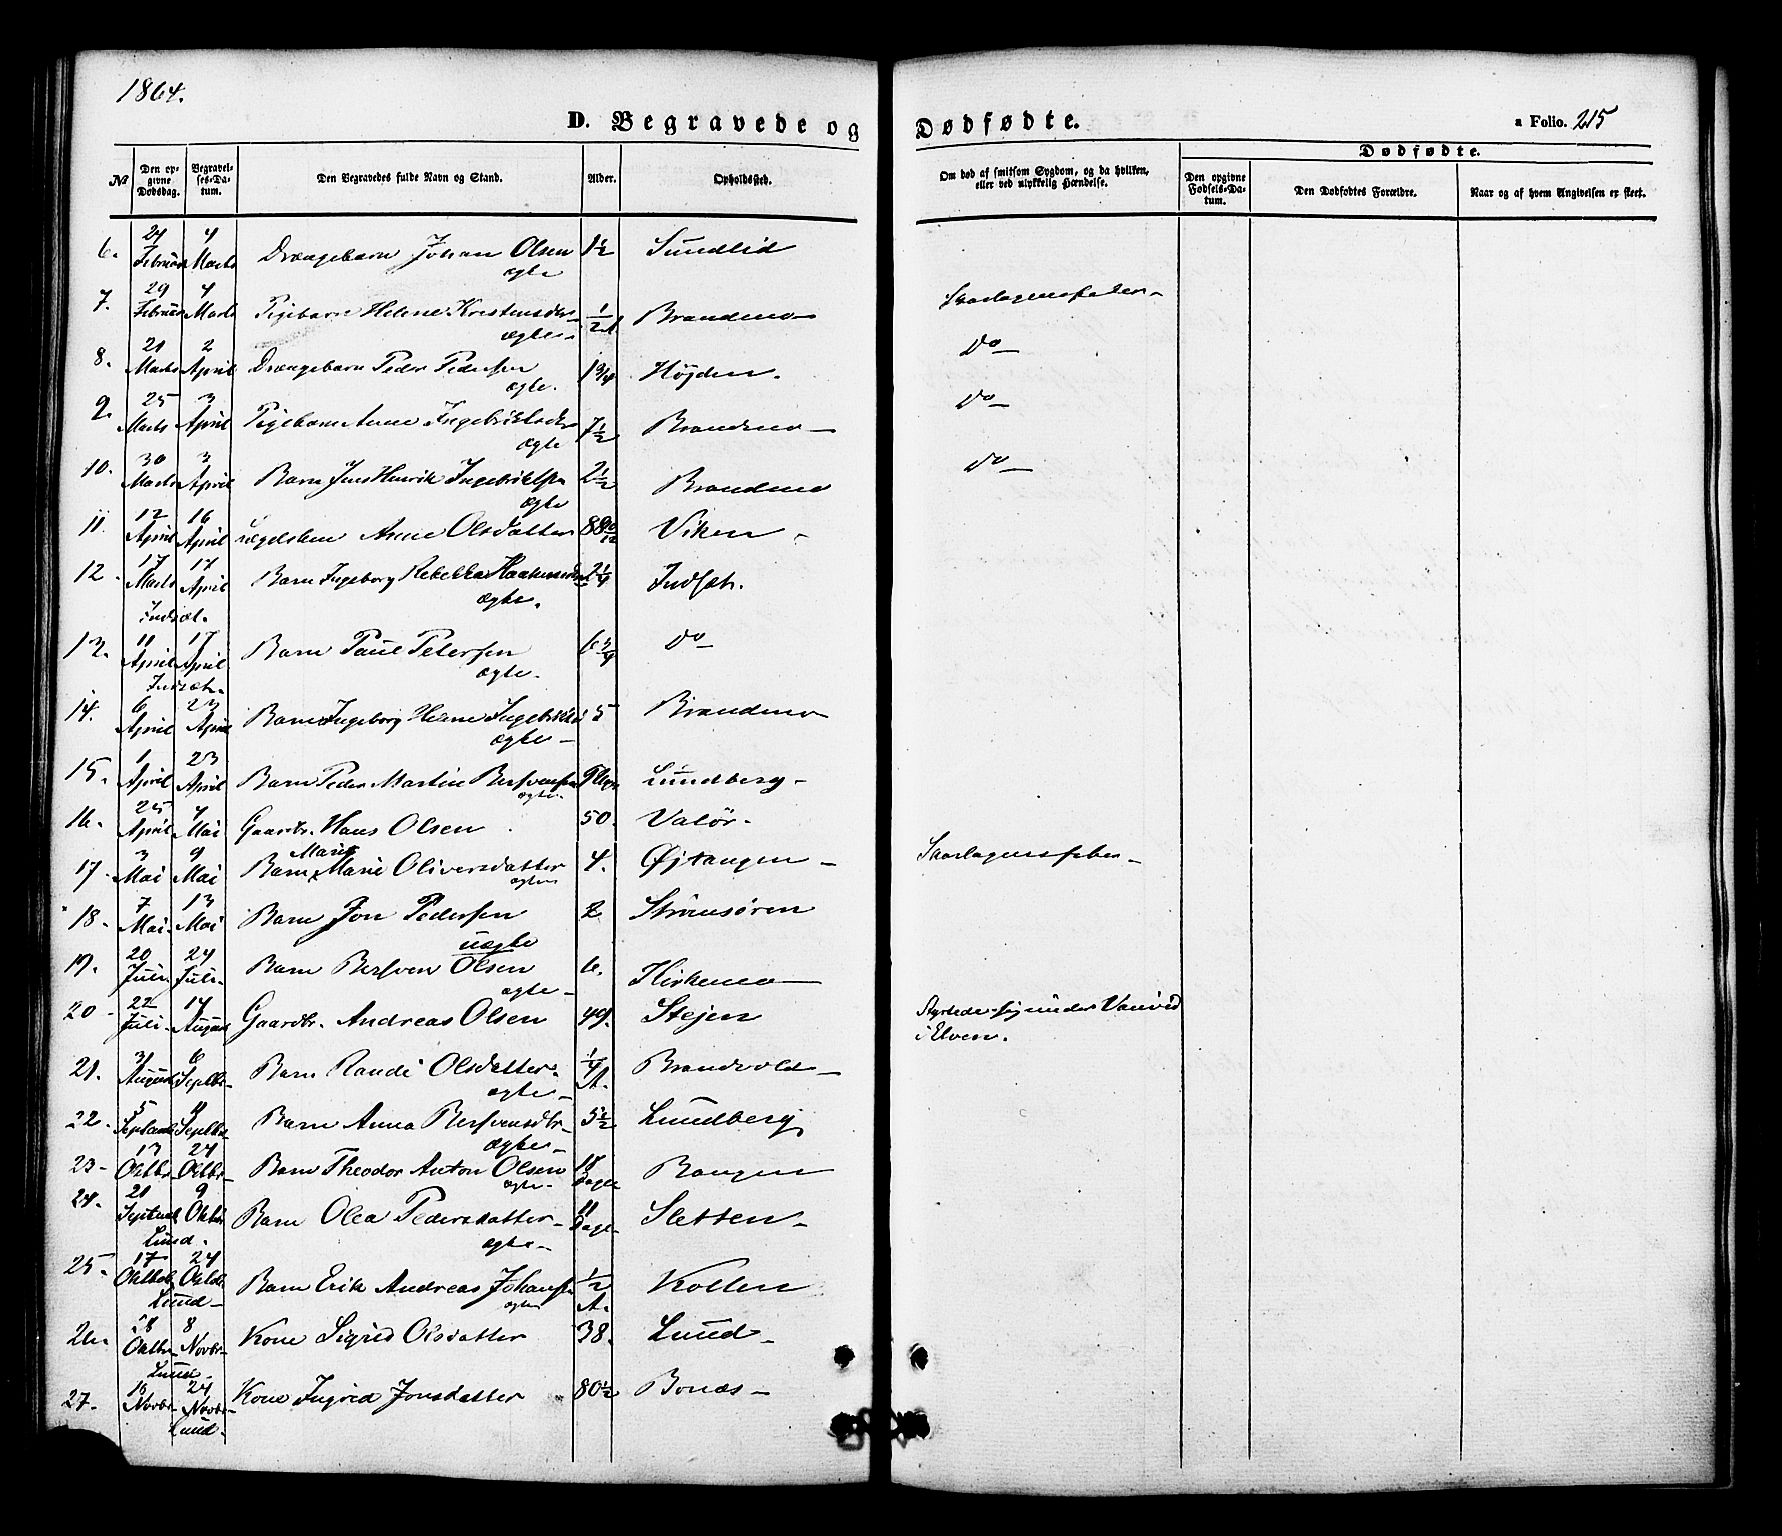 1864.
D. Begravede og Dødfødte. a Folio. 215
Dødfødte.
№ Den opgivne Dødsdag. Begravelses-Datum. Den Begravedes fulde Navn og Stand. Alder. Opholdssted. Om død af smitsom Sygdom, og da hvilken, eller ved ulykkelig Hændelse. Den opgivne Fødsels-Datum. Den Dødfødtes Forældre. Naar og af hvem Angivelsen er skeet.
6. 27 Februar 4 Marts Drængebarn Johan Olsen 1½ Sundlid
ægte
7. 29 Februar 4 Marts Pigebarn Helene Kristensdtr ½ A Brandmo Skarlagensfeber
ægte
8. 21 Marts 2 April Drængebarn Peder Pedersen 1¾ Højden. Do
ægte.
9. 25 Marts 3 April Pigebarn Anne Ingebriktsdtr 7½ Brandmo Do
ægte
10. 30 Marts 3 April Barn Jens Henrik Ingebriktsen 2½ Brandmo Do
ægte
11. 12 April 16 April Anne Olsdatter 88 10/12 Viken
12. 17 Marts 17 April Barn Ingeborg Rebekka Haakensdtr 2¼ Indset.
Indset. ægte.
13. 11 April 17 April Barn Paul Petersen 6¾ Do
Indset. ægte.
14. 6 April 23 April Barn Ingeborg Ingebriktsd 5 Brandmo
ægte
15. 1 April 23 April Barn Peder Martin Bersvensen Lundberg
ægte
16. 25 April 4 Mai Gaardbr. Hans Olsen 50. Valør.
17. 3 Mai 9 Mai Barn Marie Marie Oliversdatter 4. Øjtangen Skarlagensfeber
ægte
18. 7 Mai 13 Mai Barn Jon Pedersen 2 Strømsøren
uægte
19. 20 Juli 24 Juli Barn Bersven Olsen 6. Kirkemo
ægte
20 22 Juli 14 August Gaardbr. Andreas Olsen 49. Stejen Styrtede sig under Vanvid
i Elven.
21. 31 August 6 Septbr Barn Randi Olsdatter ¼ A. Brandvold
ægte
22. 5 Septemb 11 Septbr Barn Anna Bersvensdtr 5½ Lundberg
ægte
23 13 Oktbr 24 Oktbr Barn Theodor Anton Olsen 18 Dage Bangen
ægte
24. 21 Septemb 9 Oktbr Barn Olea Pedersdatter 11 Dage Sletten
Lund. ægte
25 17 Oktbr 24 Oktbr Barn Erik Andreas Johansen ½ A. Kollen
Lund ægte
26. 28 Oktbr 8 Novbr Kone Sigrid Olsdatter 38. Lund
Lund
27. 16 Novbr 24 Novbr Kone Ingrid Jonsdatter 80½ Bonæs
Lund.